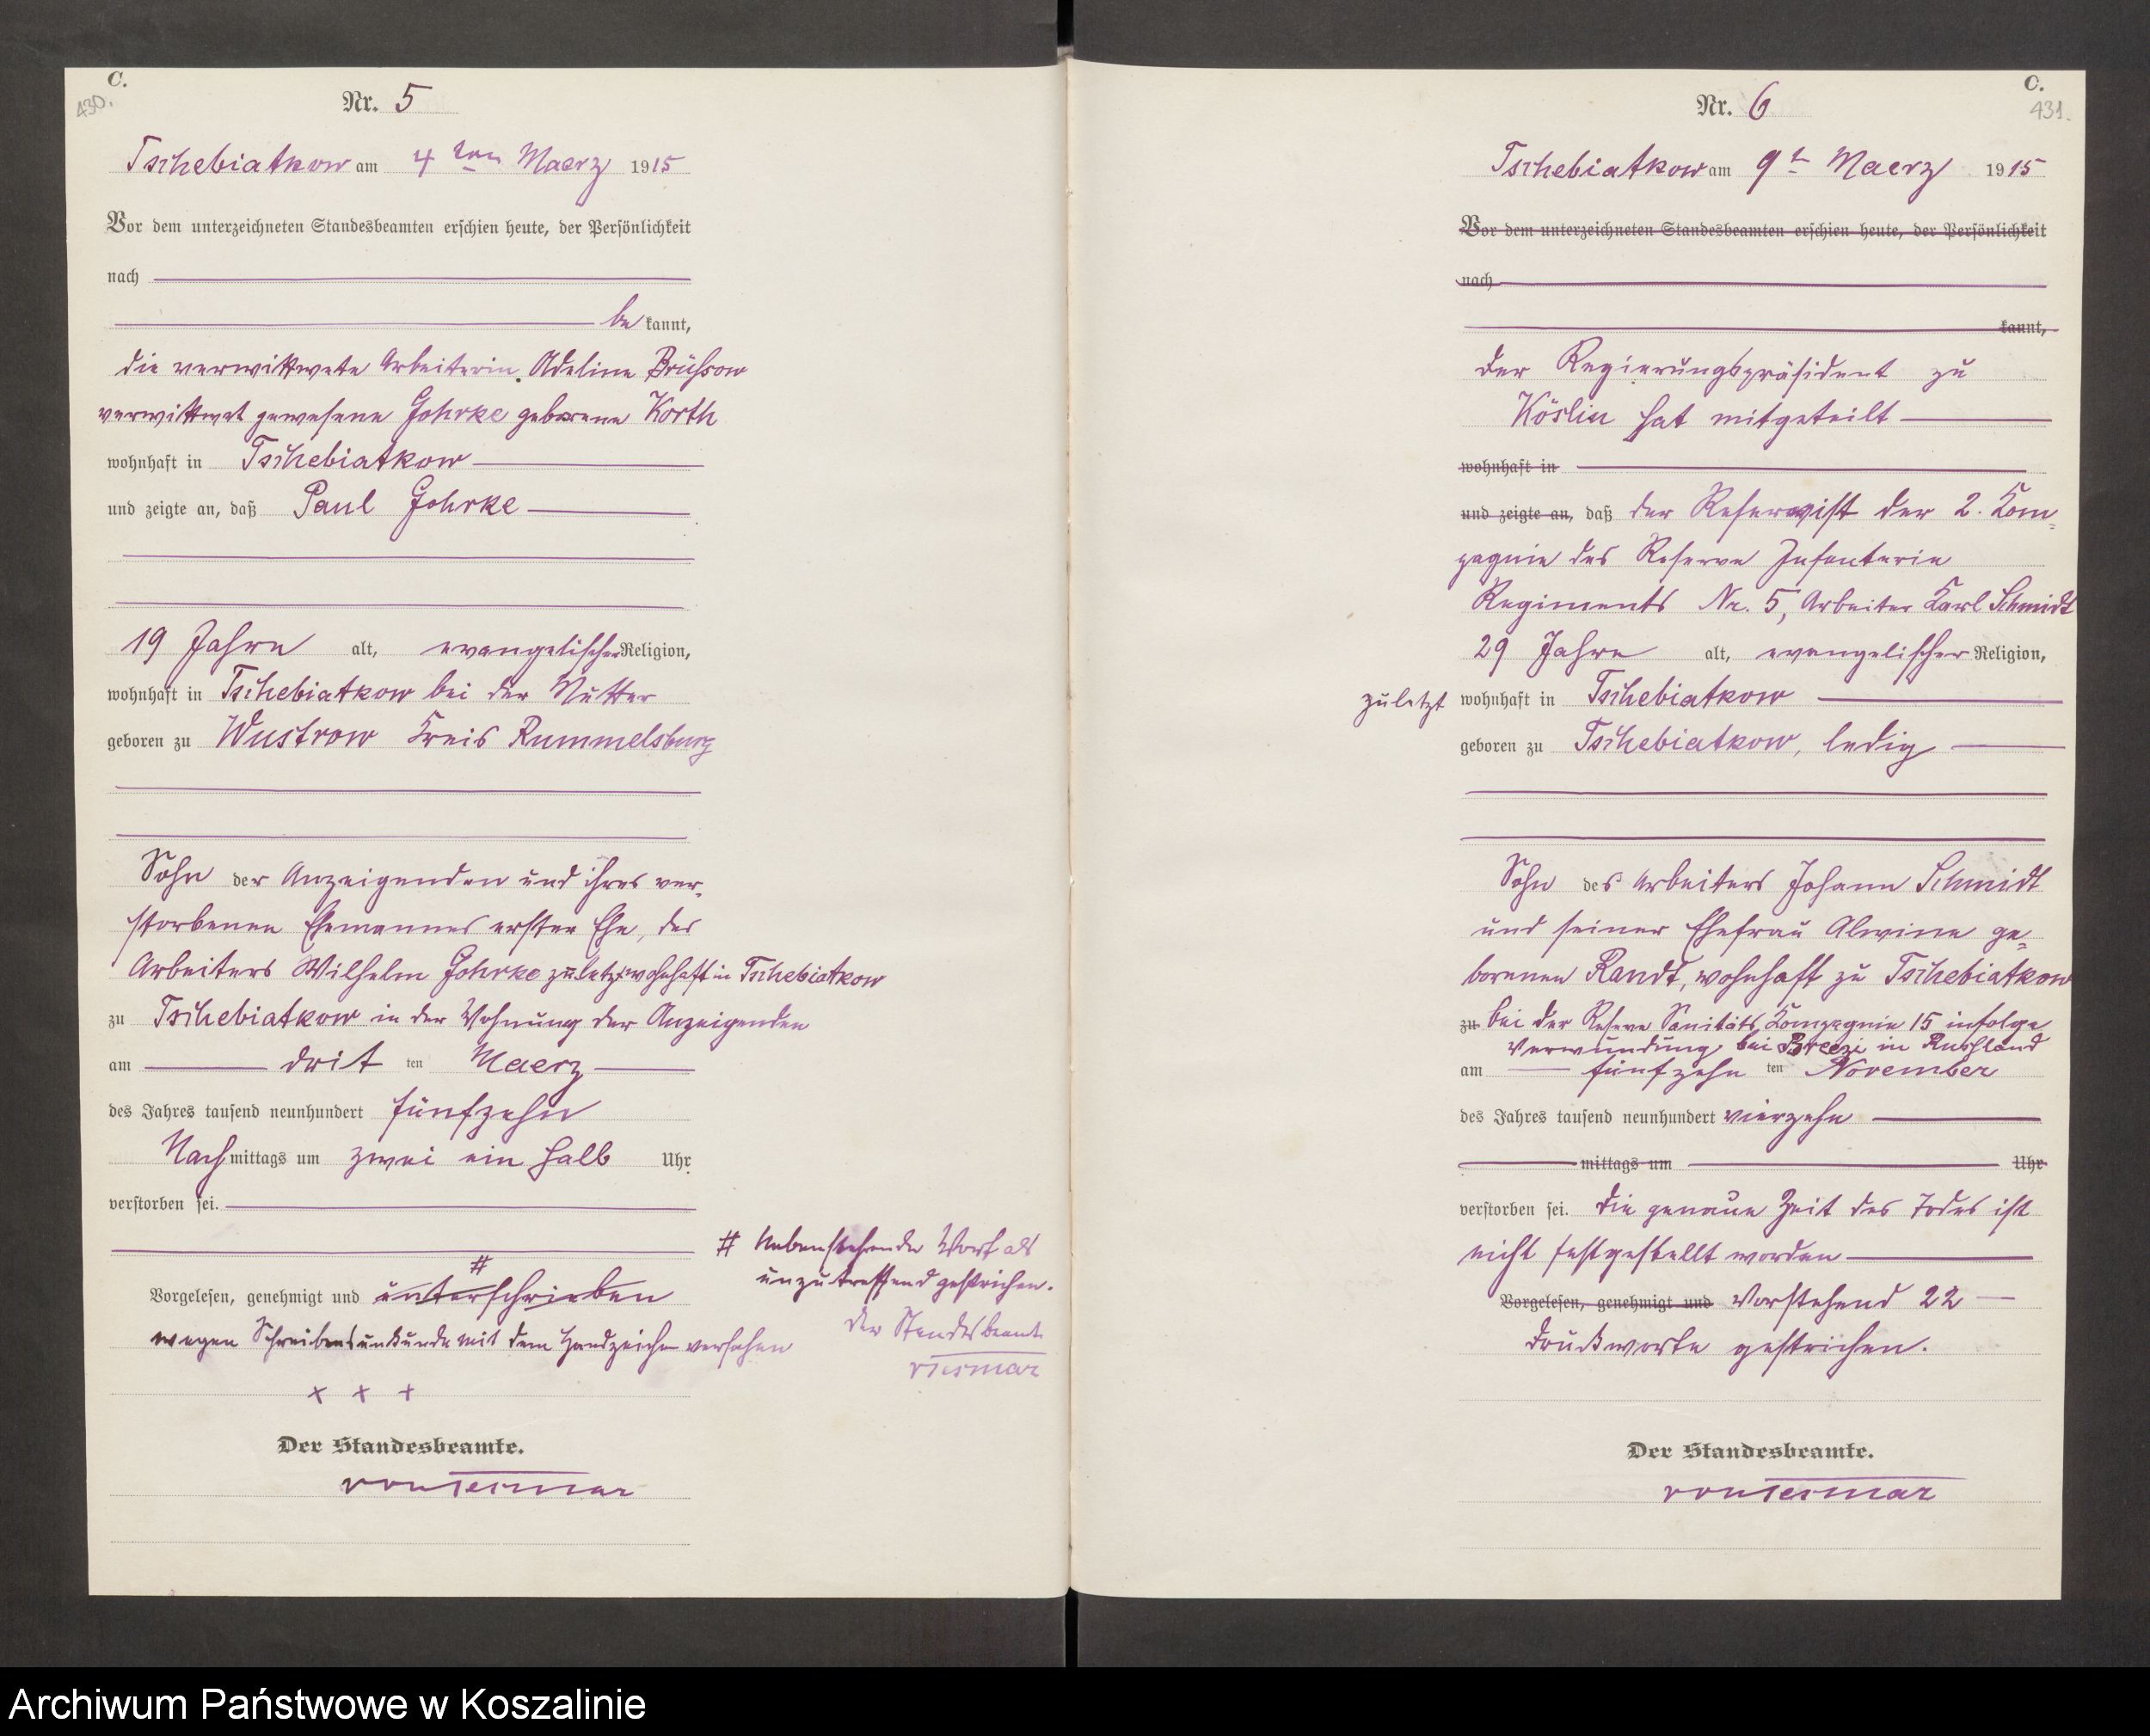 C.
430.
Nr. 5
Tschebiatkow am 4ten Maerz 1915
Vor dem unterzeichneten Standesbeamten erschien heute, der Persönlichkeit
nach
bekannt,
die verwittwete Arbeiterin Adeline Brüssow
verwittwet gewesene Gohrke geborene Korth
wohnhaft in Tschebiatkow
und zeigte an, daß Paul Gohrke
19 Jahre alt, evangelischer Religion,
wohnhaft in Tschebiatkow bei der Mutter
geboren zu Wustrow Kreis Rummelsburg
Sohn der Anzeigenden und ihres ver-
storbenen Ehemannes erster Ehe, des
Arbeiters Wilhelm Gohrke zuletzt wohnhaft in Tschebiatkow
zu Tschebiatkow in der Wohnung der Anzeigenden
am drit ten Maerz
des Jahres tausend neunhundert fünfzehn
Nachmittags um zwei ein halb Uhr
verstorben sei.
# Nebenstehende Wort als
unzutreffend gestrichen.
Der Standesbeamte
#
Vorgelesen, genehmigt und unterschrieben
wegen Schreibensunkunde mit dem Handzeichen versehen
x x +
Der Standesbeamte.
von Tesmar
C.
431.
Nr. 6
Tschebiatkow am 9t Maerz 1915
Vor dem unterzeichneten Standesbeamten erschien heute, der Persönlichkeit
nach
kannt,
der Regierungspräsident zu
Köslin hat mitgeteilt
wohnhaft in
und zeigte an, daß der Reservist der 2. Kom-
pagnie des Reserve Infanterie
Regiments Nr. 5, Arbeiter Karl Schmidt
29 Jahre alt, evangelischer Religion,
zuletzt wohnhaft in Tschebiatkow
geboren zu Tschebiatkow, ledig
Sohn des Arbeiters Johann Schmidt
und seiner Ehefrau Alwine ge-
borenen Randt, wohnhaft zu Tschebiatkow
zu bei der Reserve Sanitäts Kompagnie 15 infolge
Verwundung bei in Russland
am fünfzehn ten November
des Jahres tausend neunhundert vierzehn
mittags um Uhr
verstorben sei. Die genaue Zeit des Todes ist
nicht festgestellt worden
Vorgelesen, genehmigt und Vorstehend 22
Druckworte gestrichen.
Der Standesbeamte.
von Tesmar
Archiwum Państwowe w Koszalinie